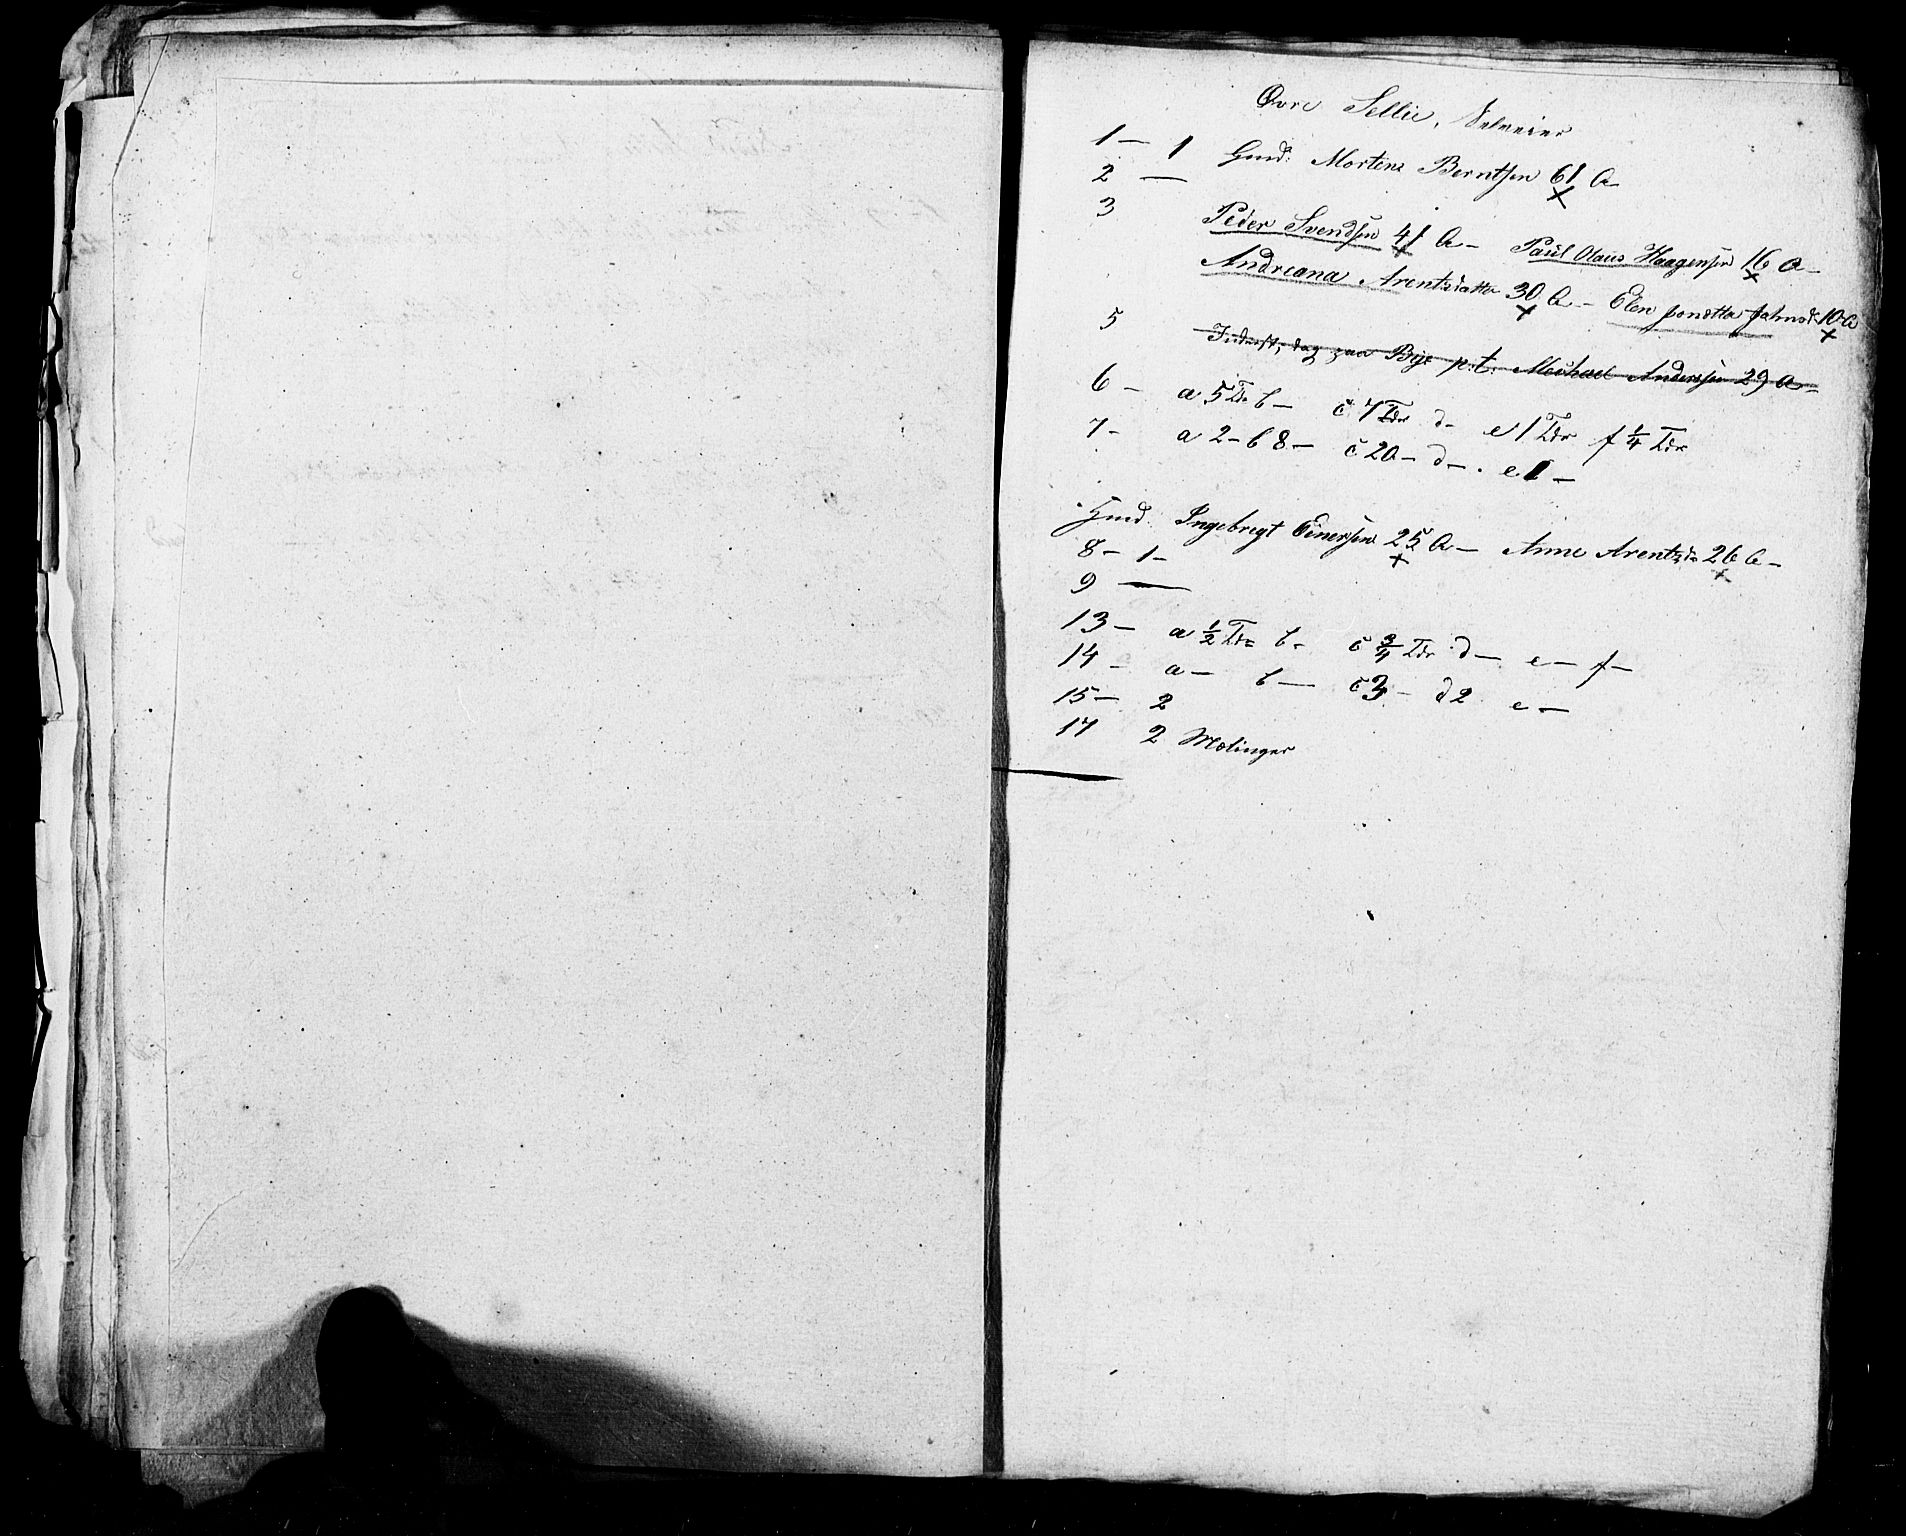 Øvre Sellie, Selveier
1 — 1 Gmd: Morten Berntsen 61 a
2 —
3 Peder Svendsen 41 a — Paul Olaus Haagensen 16 a —
Andreana Arentsdatter 30 a — Elen Jonetta 10 a
5 p.t. Michael Andersen 29 a —
6 — a 5 Tdr b — c 7 Tdr d — e 1 Tdr f 1/4 Tdr
7 — a 2 — b 8 — c 20 — d — e 1 —
Hmd. Ingebrigt Einersen 25 a — Anne Arentsd 26 a —
8 — 1 —
9 —
13 — a 1/2 Tdr b — c 3/4 Tdr d — e — f —
14 — a — b — c 3 — d 2 e —
15 — 2
17 2 Mølinger